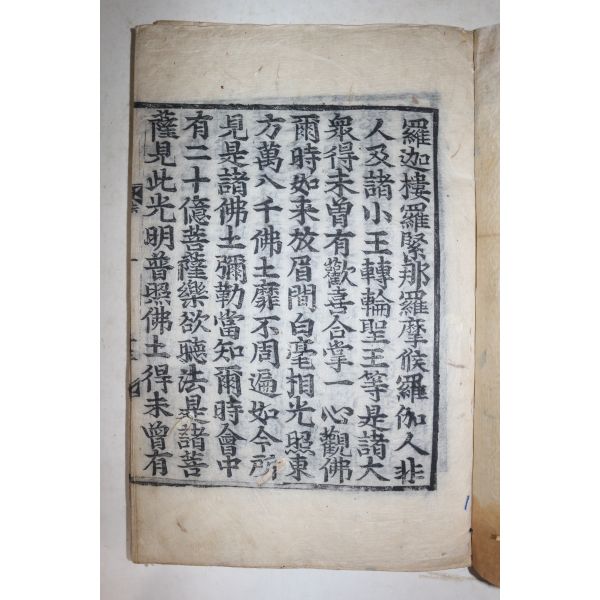 羅迦樓羅緊那羅摩睺羅伽人非
人及諸小王轉輪聖王等是諸大
衆得未曾有歡喜合掌一心觀佛
爾時如來放眉間白毫相光照東
方萬八千佛土靡不周遍如今所
見是諸佛土彌勒當知爾時會中
有二十億菩薩樂欲聽法是諸菩
薩見此光明普照佛土得未曾有